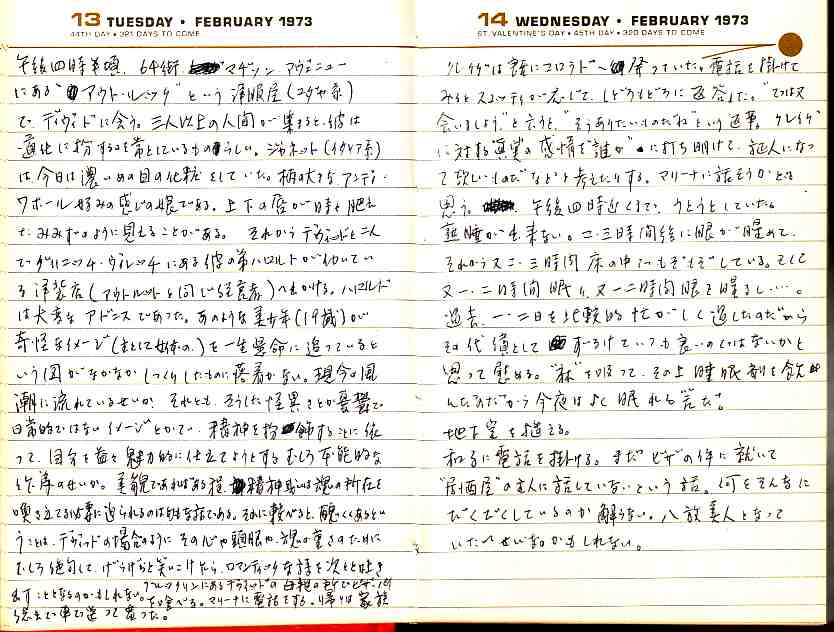 13 TUESDAY • FEBRUARY 1973
44TH DAY • 321 DAYS TO COME
午後四時半頃、64街 マヂソン アヴェニュー
にある“アウトールック”という洋服屋(ユダヤ系)
で、デヴィドに会う。三人以上の人間が集ると、彼は
道化に扮するを常としているものらしい。ジャネット(イタリア系)
は今日は濃いめの目の化粧をしていた。柄の大きなアンディ・
ワホール好みの感じの娘である。上下の唇が時々肥え
たみみずのように見えることがある。それからデヴィドと二人
でグリニッチ・ヴィレッヂにある彼の弟ハロルドが働いてい
る洋装店(アウトルックと同じ経営者)へ出かける。ハロルド
は大きなアドニスであった。あのような美少年(19歳)が
奇怪なイメージ(主として姿体の)を一生懸命に追っていると
いう図がなかなかしっくりしたものに落着かない。現今の風
潮に流れているせいか、それとも、そうした怪異さとか憂鬱で
日常的ではないイメージとかで、精神を粉飾することに依
って、自分を益々魅力的に仕立てようとするむしろ本能的な
作為のせいか。美貌であればある程、精神或いは魂の所在を
嗅ぎ立てる必要に迫られるのは
うことは、デヴィッドの場合のように その心や頭脳や、魂の重さのために
むしろ絶句して、げらげらと笑いこけたり、ロマンティックな詩を次々と吐き
出すこととなるのかもしれない。ブルックリンにあるデヴィッドの母親の所でピザパイ
を食べる。マリーナに電話する。帰りは家族
総出で車で送って貰った。
14 WEDNESDAY • FEBRUARY 1973
ST. VALENTINE'S DAY • 45TH DAY • 320 DAYS TO COME
クレイグは既にコロラドへ発っていた。電話を掛けて
みるとスコッティが応じて、しどろもどろに返答した。“では又
会いましょう”と言うと、“そうありたいものだね”という返事。クレイグ
に対する真実の感情を“誰か”に打ち明けて、証人になっ
て欲しいものだなどと考えたりする。マリーナに話そうかとも
思う。午後四時近くまで、うとうとしていた。
熟睡が出来ない。二、三時間後に眼が醒めて、
それから又二、三時間 床の中でもぞもぞしている。そして
又一、二時間眠り、又一二時間眼を醒まし…。
過去、一、二日を比較的忙がしく過したのだから
その代償として ずるけていても良いのではないかと
思って慰める。“林”を吸って、その上睡眠剤を飲
んだのだから今夜はよく眠れる筈だ。
地下室を
和子に電話を掛ける。まだビザの件に就いて
“居酒屋”の主人に話していないという話。何をそんなに
ぐずぐずしているのか解らない。八方美人となって
いたいせいなのかもしれない。